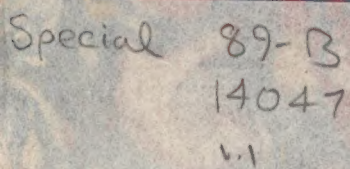 Special 89-B
14047
v.1